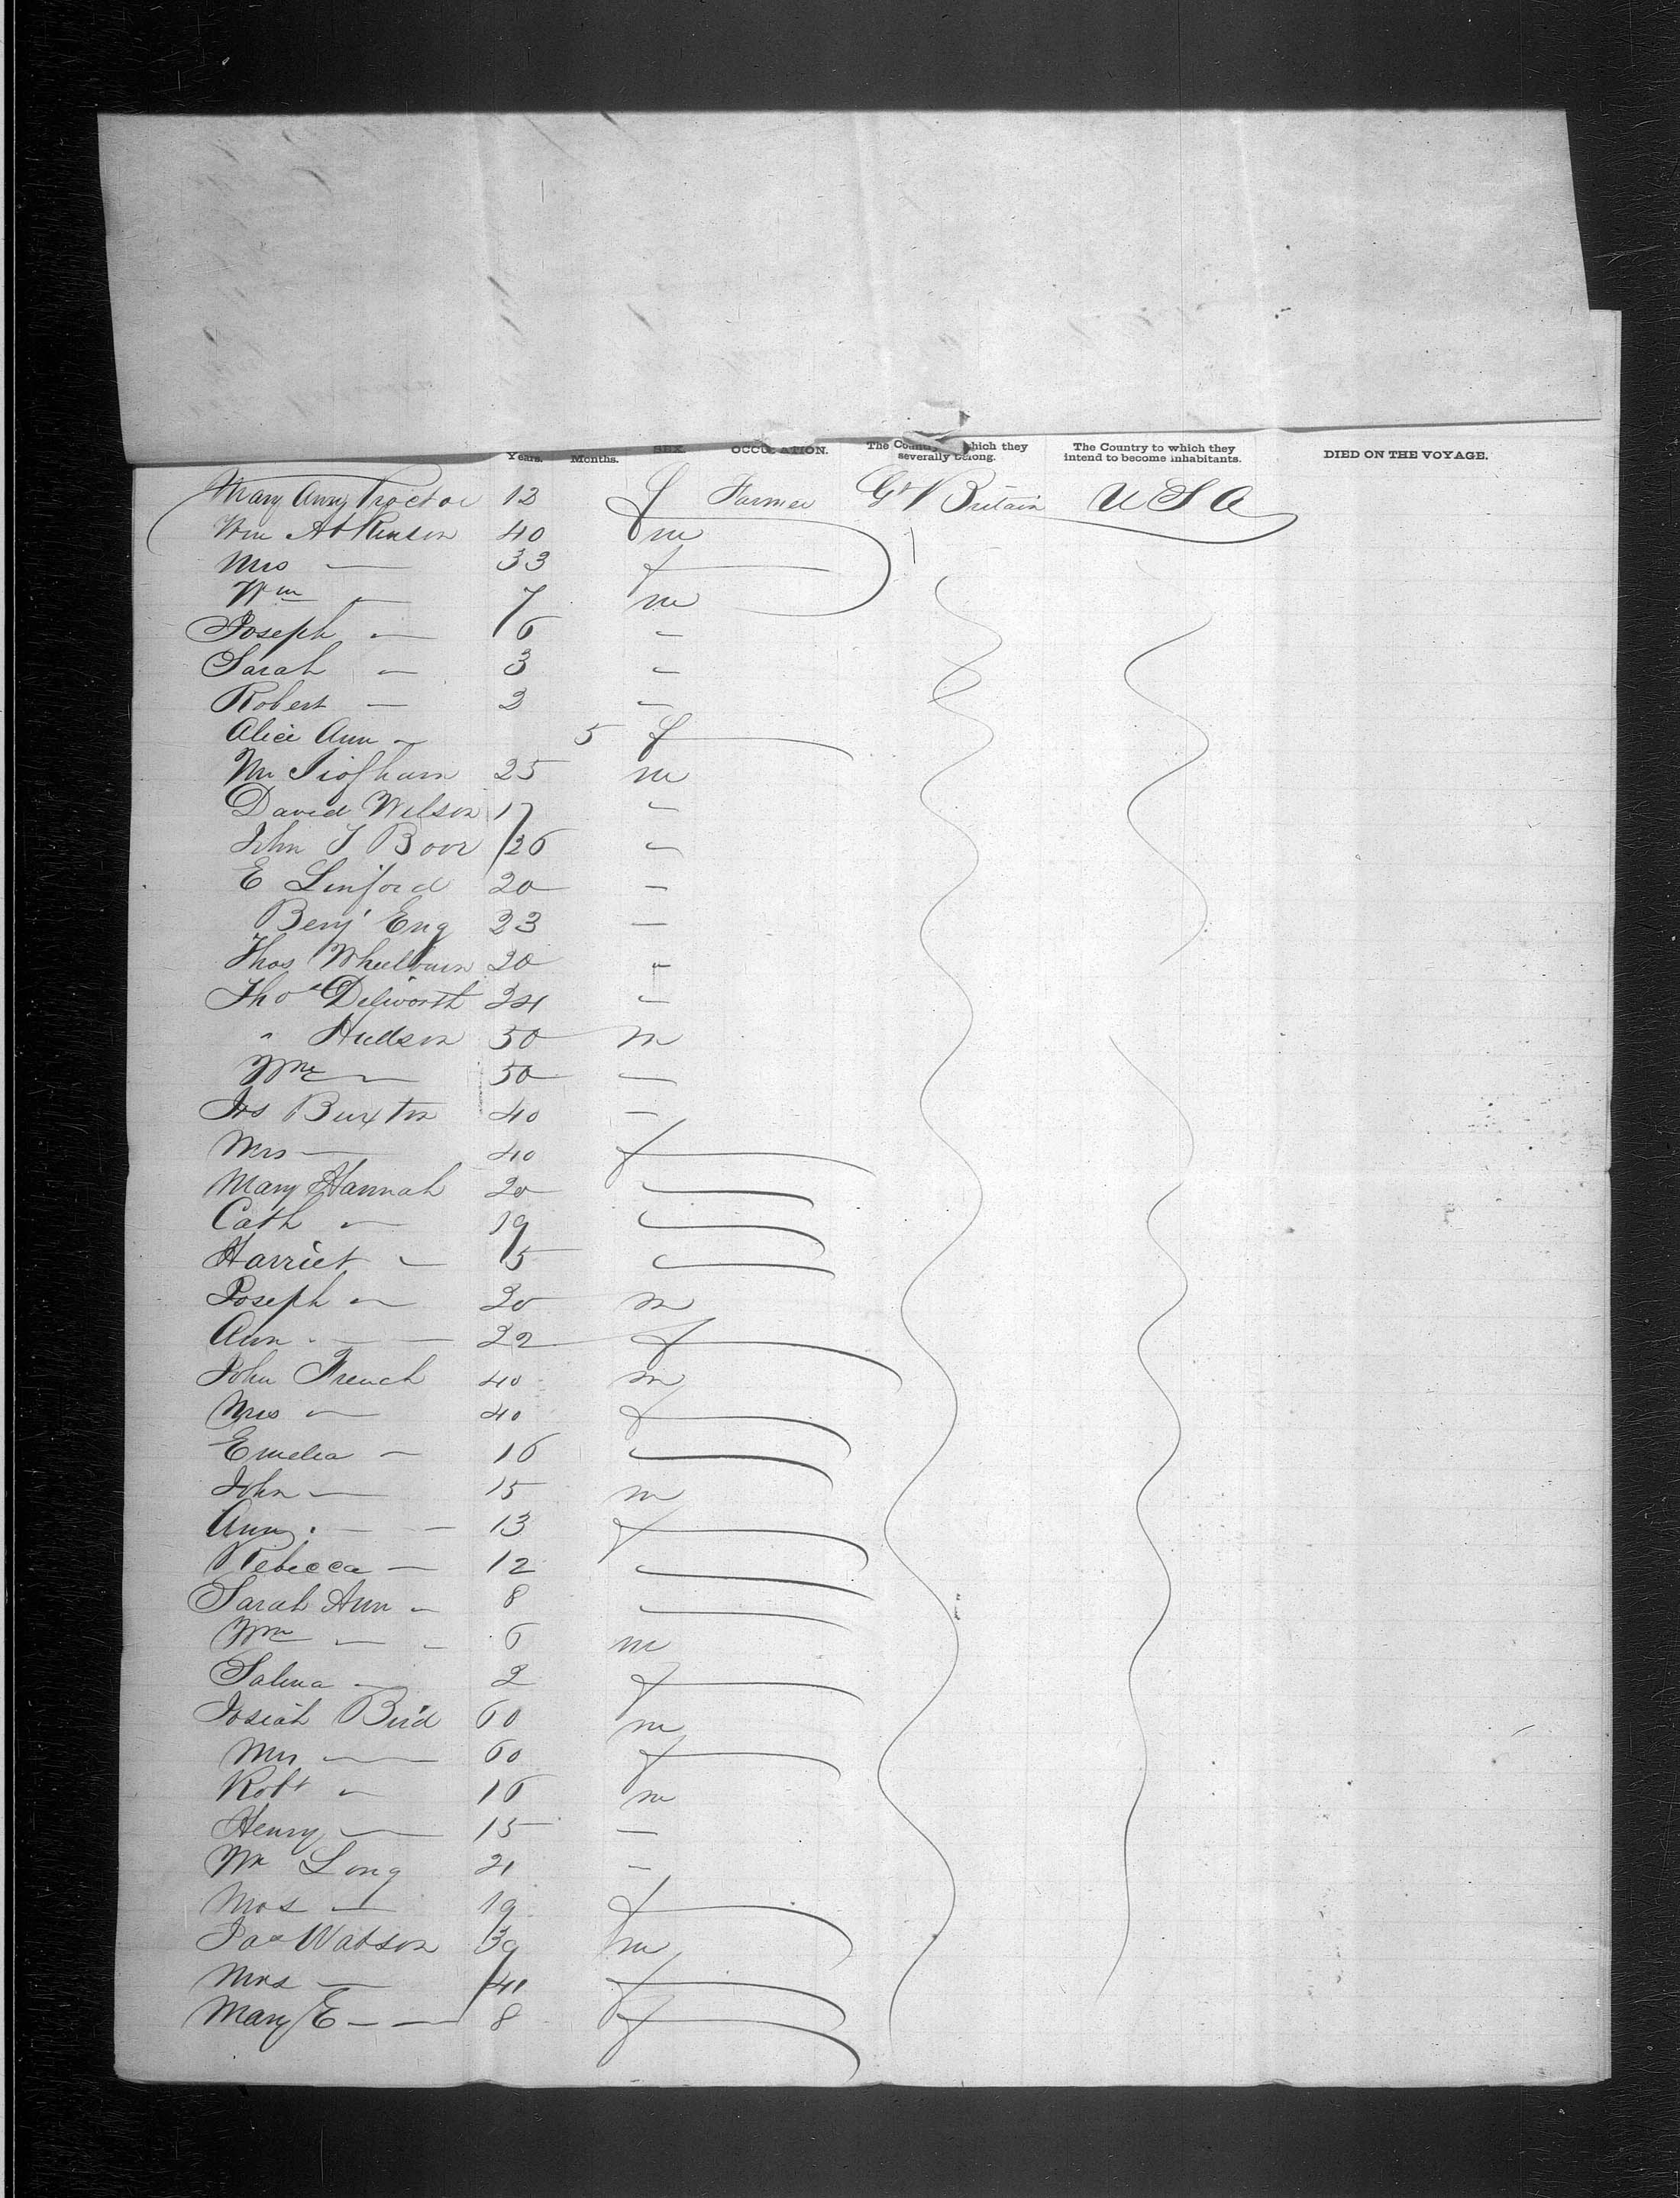 Years. Months. SEX. OCCUPATION. The Country which they severally belong. The Country to which they intend to become inhabitants. DIED ON THE VOYAGE.
Mary Ann Proctor 13 f Farmer Gt Britain U S A
Wm Atkinson 40 m
Mrs — 33 f
Wm — 7 m
Joseph — 6 —
Sarah — 3 —
Robert — 2 —
Alice Ann — 5 f
25 m
David Wilson 17 —
John T Boor 26 —
E Linford 20 —
Benj Eng 23 —
Thos 20 "
Thos Dilworth 24 —
" Hudson 50 m
Wm — 50 —
Jas Buxton 40 —
Mrs — 40 f
Mary Hannah 20 —
Cath — 19 —
Harriet — 15 —
Joseph — 20 m
Ann — 22 f
John French 40 m
Mrs — 40 f
Emelia — 16 —
John — 15 m
Ann — 13 f
Rebecca — 12 —
Sarah Ann — 8 —
Wm — 6 m
Salina — 2 f
Josiah Bird 60 m
Mrs — 60 f
Robt — 16 m
Henry — 15 —
Wm Long 21 —
Mrs — 19 f
Jas Watson 39 m
Mrs — 41 f
Mary E — 8 f